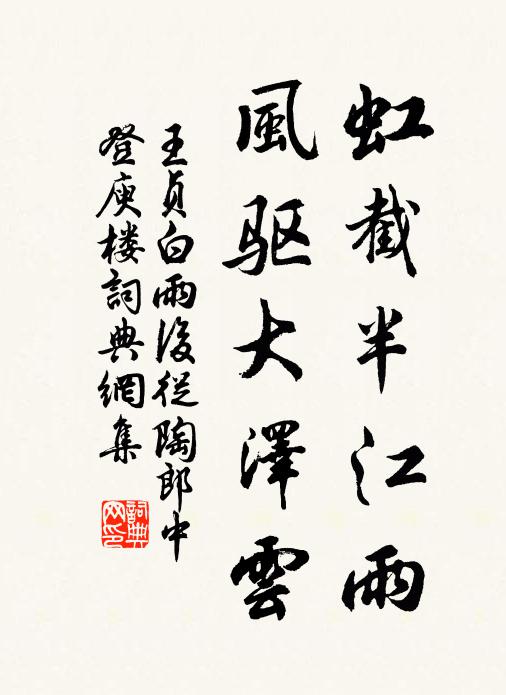 虹截半江雨
風驱大澤雲
王贞白雨後従陶郎中
登庾楼詞典網集
詞典
网印